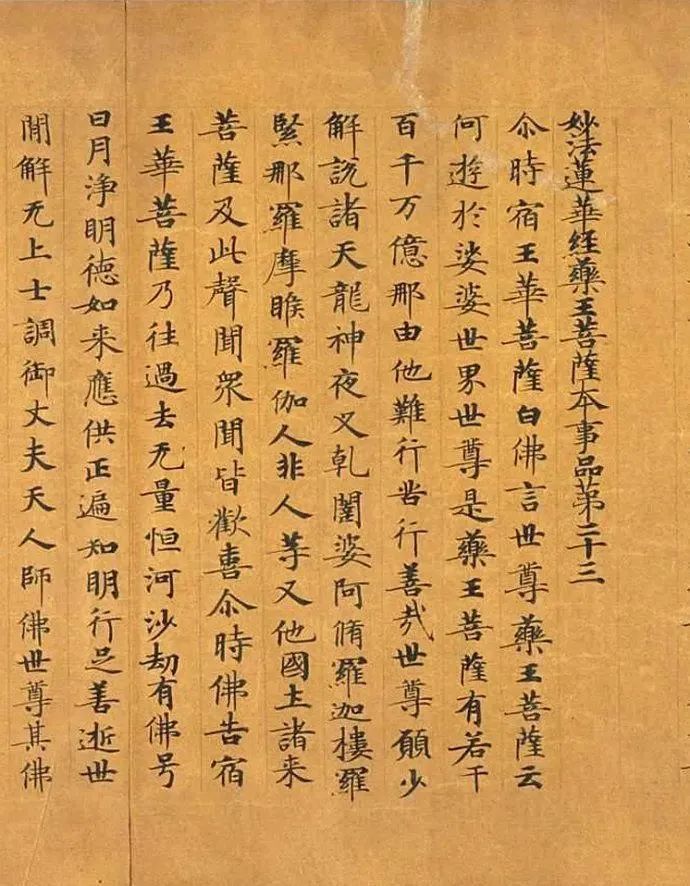 妙法蓮華經藥王菩薩本事品第二十三
尒時宿王華菩薩白佛言世尊藥王菩薩云
何遊於娑婆世界世尊是藥王菩薩有若干
百千万億那由他難行苦行善哉世尊願少
解說諸天龍神夜叉乹闥婆阿脩羅迦樓羅
緊那羅摩睺羅伽人非人等又他國土諸來
菩薩及此聲聞衆聞皆歡喜尒時佛告宿
王華菩薩乃往過去无量恒河沙劫有佛号
日月淨明德如来應供正遍知明行足善逝世
間解无上士調御丈夫天人師佛世尊其佛